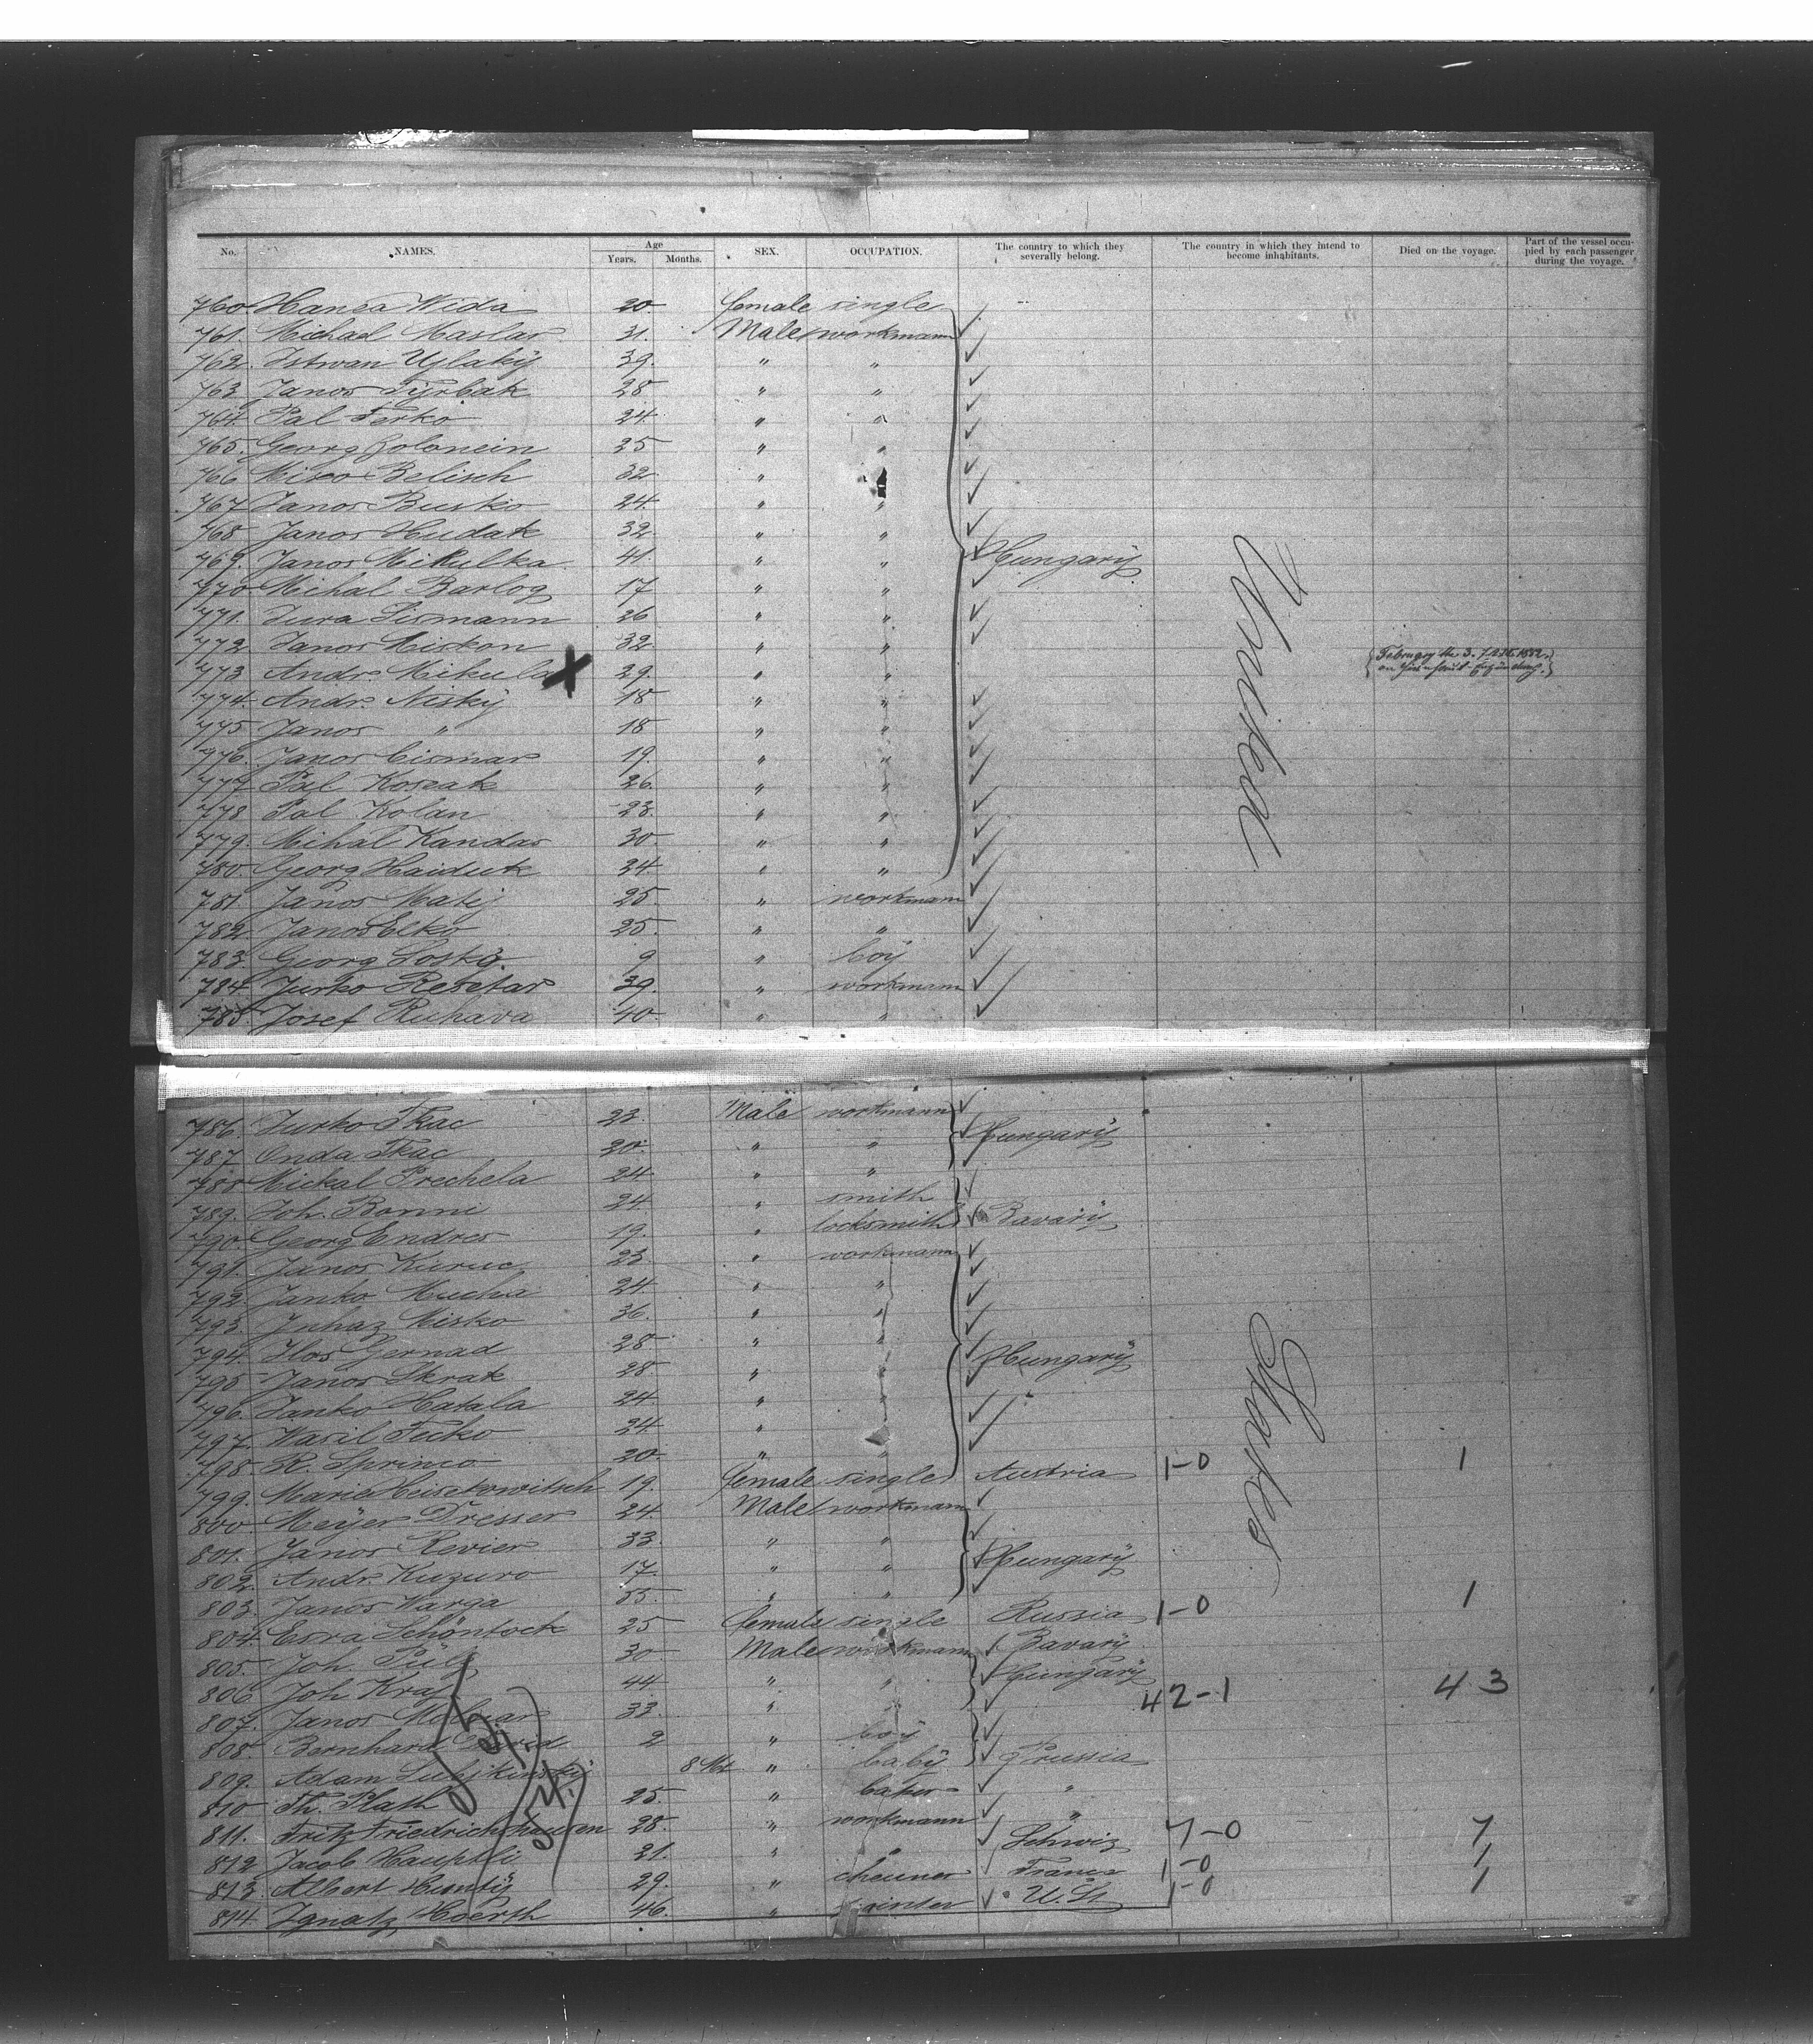 No. NAMES. Age Years. Months. SEX. OCCUPATION. The country to which they severally belong. The country in which they intend to become inhabitants. Died on the voyage. Part of the vessel occupied by each passenger during the voyage.
760. Hansa Wida 20 female single
761. Michael Maslar 31. Male workmann
762. Istwan Ujlaky 39. " "
763 Janos Tyrbak 28 " "
764. Pal Ferko 24. " "
765. Georg 25 " "
766 Misco Belisch 32 " "
767 Janos Busko 24. " "
768 Janos Hudak 32 " "
769. Janos Mikulka 41. " " Hungary
770 Mihal Barlog 17 " "
771. Jura Sismann 26 " "
772 Janos Miskon 32 " "
773 Andr. Mikula X 29. " " February the 3. 1882.
774 Andr. Nisky 18 " "
775 Janos " 18 " "
776. Janos Cismar 19. " "
777 Pal Koscak 26. " "
778 Pal Kolan 23. " "
779. Mihal Kandar 30 " "
780. Georg Haiduk 24. " "
781. Janos Matij 25 " workmann
782. Janos Elko 25. " "
783. Georg Loska 9 " boy
784. Jurko Resetar 39. " workmann
785. Josef Ruhava 40 " "
United
786. Jurko Tkac 23. Male workmann
787 Onda Tkac 20. " " Hungary
788 Mickal Prechela 24 " "
789. Joh. Bonni 24. " smith
790. Georg Endres 19. " locksmith Bavary
791. Janos Kuruc 23. " workmann
792. Janko Mucha 24. " "
793. Juhaz Misko 36. " "
794. Ilos Gernad 28 " "
795 Janos Skrak 28. " " Hungary
796. Janko Hatala 24 " "
797. Wasil Fecko 24. " "
798. R. Sprinco 20. " "
799. Marie 19. female single Austria 1-0 1
800. Meyer Dresser 24. Male workmann
801. Janos Revier 33. " "
802. Andr. Kuzuro 17. " " Hungary
803. Janos Warga 55. " "
804. Esra Schöntock 25 female single Russia 1-0 1
805. Joh. 30 Male workmann Bavary
806 Joh Kraj 44 " " Hungary
807. Janos Molnar 33. " " 42-1 43
808. Bernhard David 2 " boy
809. Adam 8 Mt. " baby Prussia
810 Th. Plath 25. " baker "
811. Fritz Friedrichshausen 28. " workmann "
812 Jacob Hauptli 21. " " Schwiz 7-0 7
813. Albert 29. " France 1-0 1
814 Ignatz Hoerth 46. " U. St 1-0 1
States